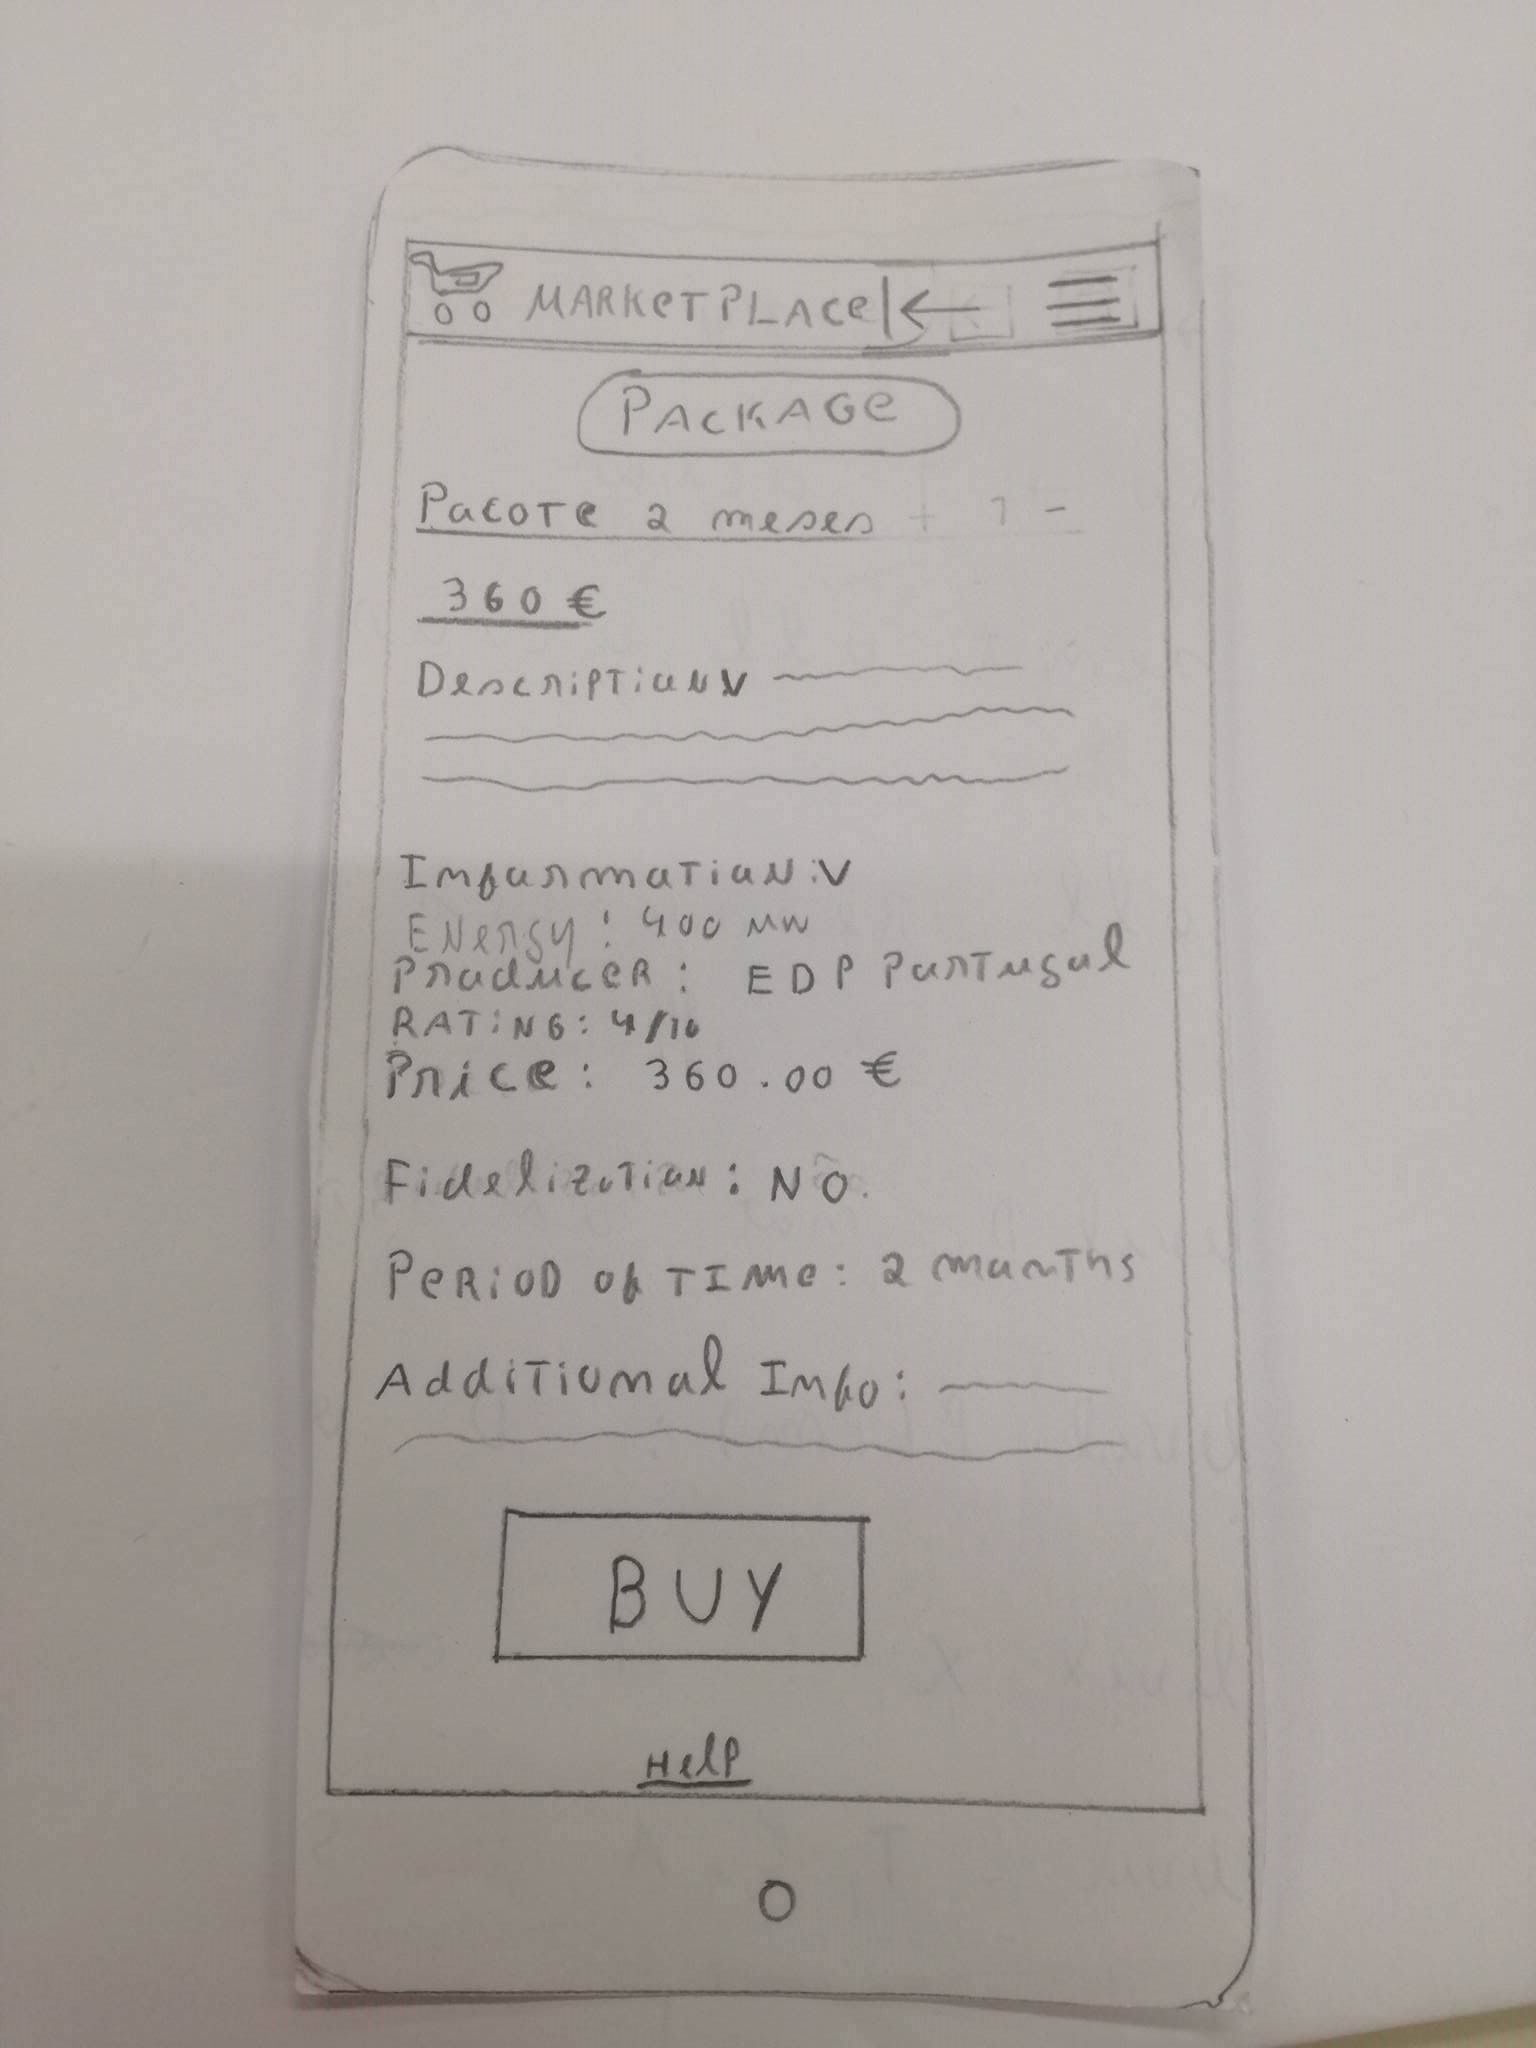 MARKETPLACE
PACKAGE
Pacote 2 meses + 1 -
360 €
Description V
Information: V
Energy: 400 MW
Producer: EDP Portugal
RATING: 4/10
Price: 360.00 €
Fidelization: NO.
Period of Time: 2 months
Additional Info:
BUY
Help